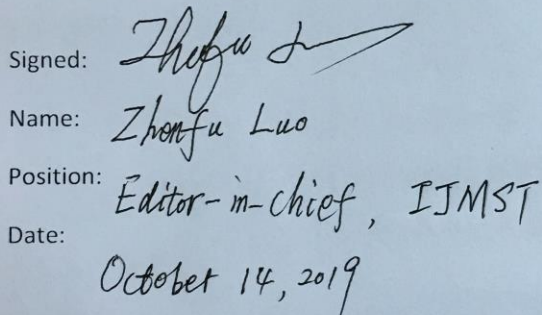 Signed: Zhefu L
Name: Zhenfu Luo
Position: Editor-in-chief, IJMST
Date:
October 14, 2019